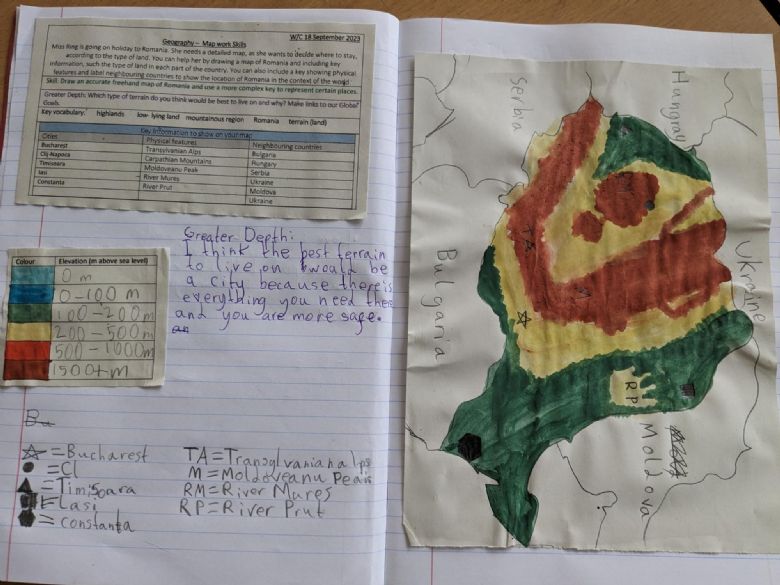 W/C 18 September 2023
Geography – Map work Skills
Miss Ring is going on holiday to Romania. She needs a detailed map, as she wants to decide where to stay,
according to the type of land. You can help her by drawing a map of Romania and including key
information, such the type of land in each part of the country. You can also include a key showing physical
features and label neighbouring countries to show the location of Romania in the context of the world.
Skill: Draw an accurate freehand map of Romania and use a more complex key to represent certain places.
Greater Depth: Which type of terrain do you think would be best to live on and why? Make links to our Global
Goals.
Key vocabulary: highlands low-lying land mountainous region Romania terrain (land)
Key information to show on your map
Cities Physical features Neighbouring countries
Bucharest Transylvanian Alps Bulgaria
Cluj-Napoca Carpathian Mountains Hungary
Timisoara Moldoveanu Peak Serbia
Iasi River Mures Ukraine
Constanta River Prut Moldova
Ukraine
Greater Depth:
I think the best terrain
to live on would be
a city because there is
everything you need there
and you are more safe.
Colour Elevation (m above sea level)
0 m
0-100 m
100-200m
200-500m
500-1000m
1500+m
=Bucharest
=Cl
=Timisoara
=Iasi
=constanta
TA=Transylvanian alps
M=Moldoveanu Peak
RM=River Mures
RP=River Prut
Serbia
Hungray
Ukraine
Bulgaria
Moldova
TA
M
RM
RP